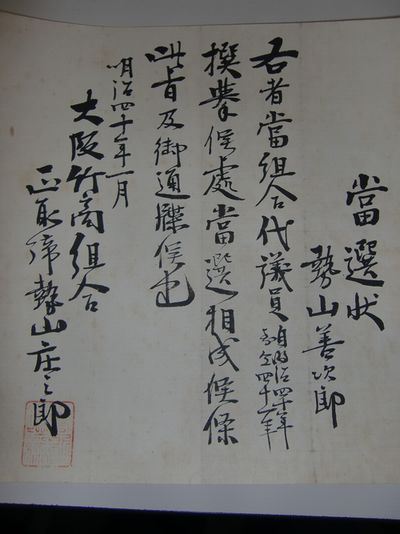 當選状
勢山善次郎
右者當組合代議員
自明治四十年
至仝四十二年
撰擧候處當選相成候條
此旨及御通牒候也
明治四十年一月
大阪竹商組合
正取締勢山庄三郎